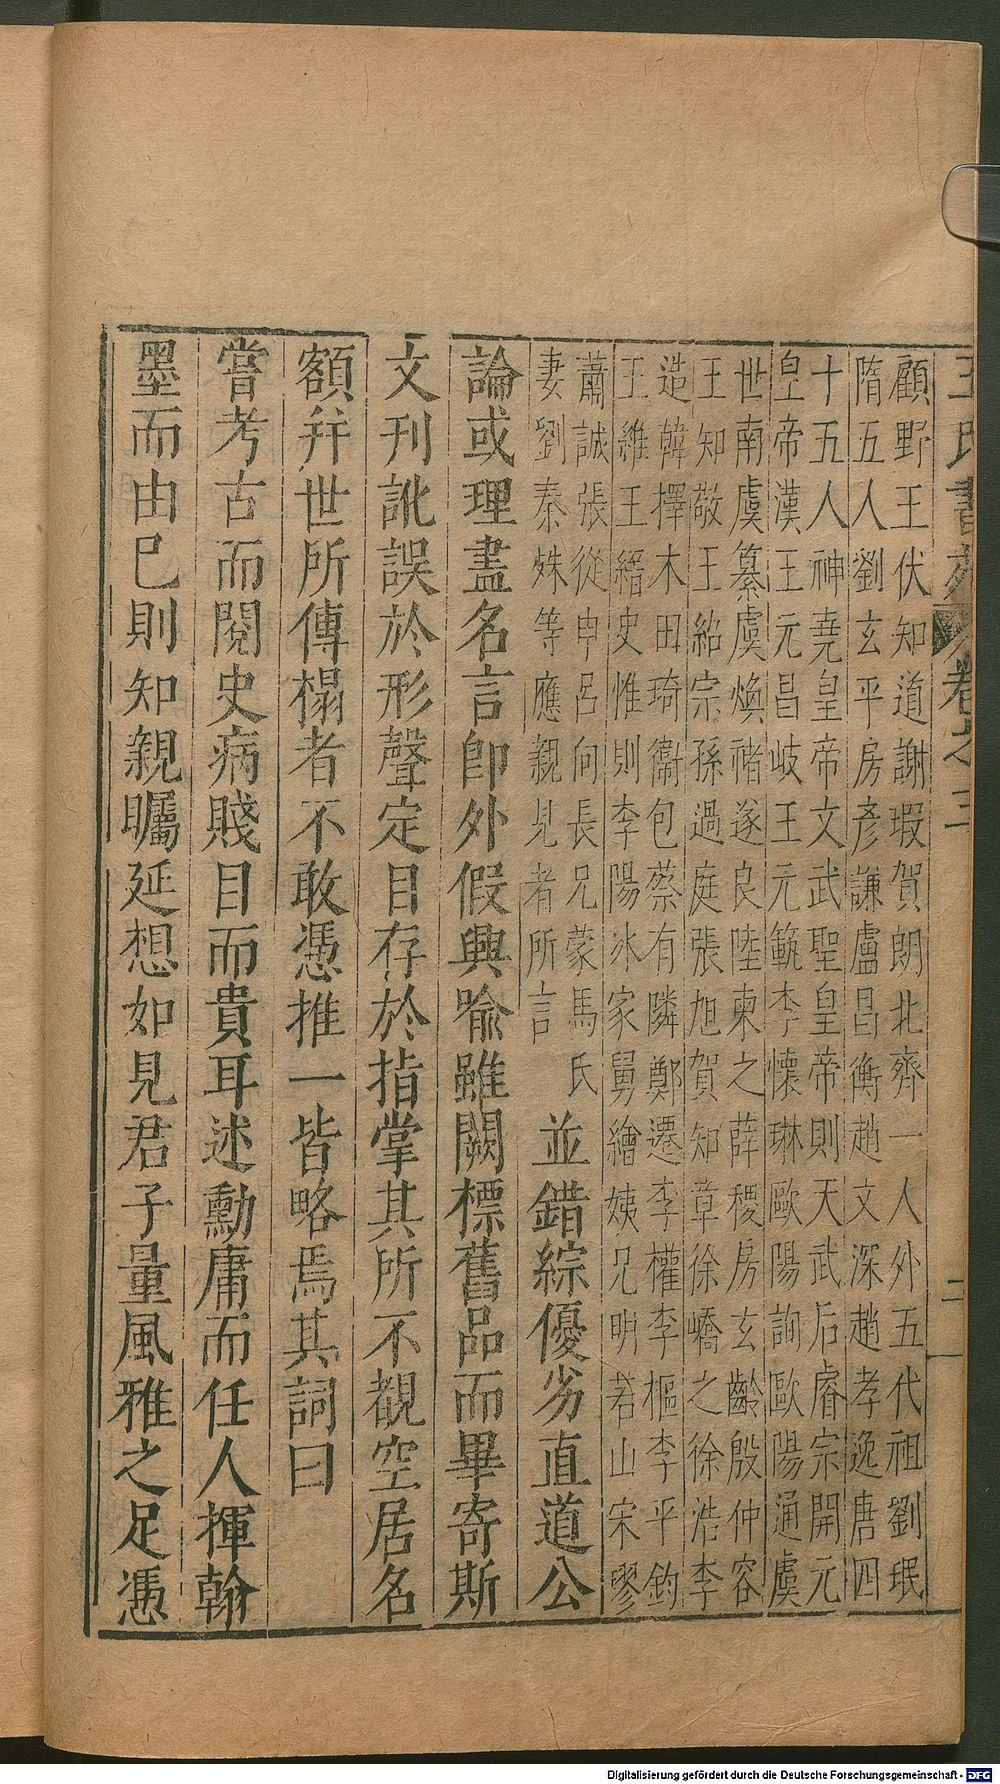 王氏書苑 卷之三 二
顧野王伏知道謝瑕賀朗北齊一人外五代祖劉珉
隋五人劉玄平房彥謙盧昌衡趙文深趙孝逸唐四
十五人神堯皇帝文武聖皇帝則天武后睿宗開元
皇帝漢王元昌岐王元範李懷琳歐陽詢歐陽通虞
世南虞纂虞煥禇遂良陸柬之薛稷房玄齡殷仲容
王知敬王紹宗孫過庭張旭賀知章徐嶠之徐浩李
造韓擇木田琦衞包蔡有隣鄭遷李權李樞李平鈞
王維王縉史惟則李陽冰家舅繪姨兄明若山宋寥
蕭誠張從申呂向長兄蒙馬氏
妻劉秦妹等應親見者所言
並錯綜優劣直道公
論或理盡名言卽外假興喩雖闕標舊品而畢寄斯
文刊訛誤於形聲定目存於指掌其所不覩空居名
額幷世所傳榻者不敢憑推一皆略焉其詞曰
嘗考古而閱史病賤目而貴耳述勳庸而任人揮翰
墨而由巳則知親矚延想如見君子量風雅之足憑
Digitalisierung gefördert durch die Deutsche Forschungsgemeinschaft - DFG